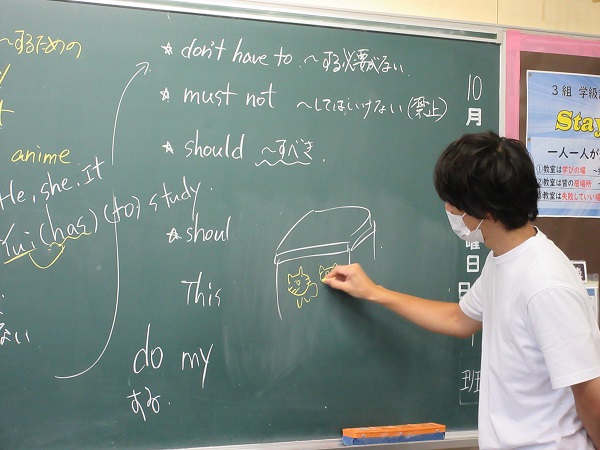 ～するための
anime
He, she, It
Yui (has) (to) study.
ない
★ don't have to ～する必要がない.
★ must not ～してはいけない (禁止)
★ should ～すべき
★ shoul
This
do my
する.
10
月
曜
日
班
3組 学級
Stay
一人一人が
①教室は学びの場
②教室は皆の居場所
教室は失敗していい場